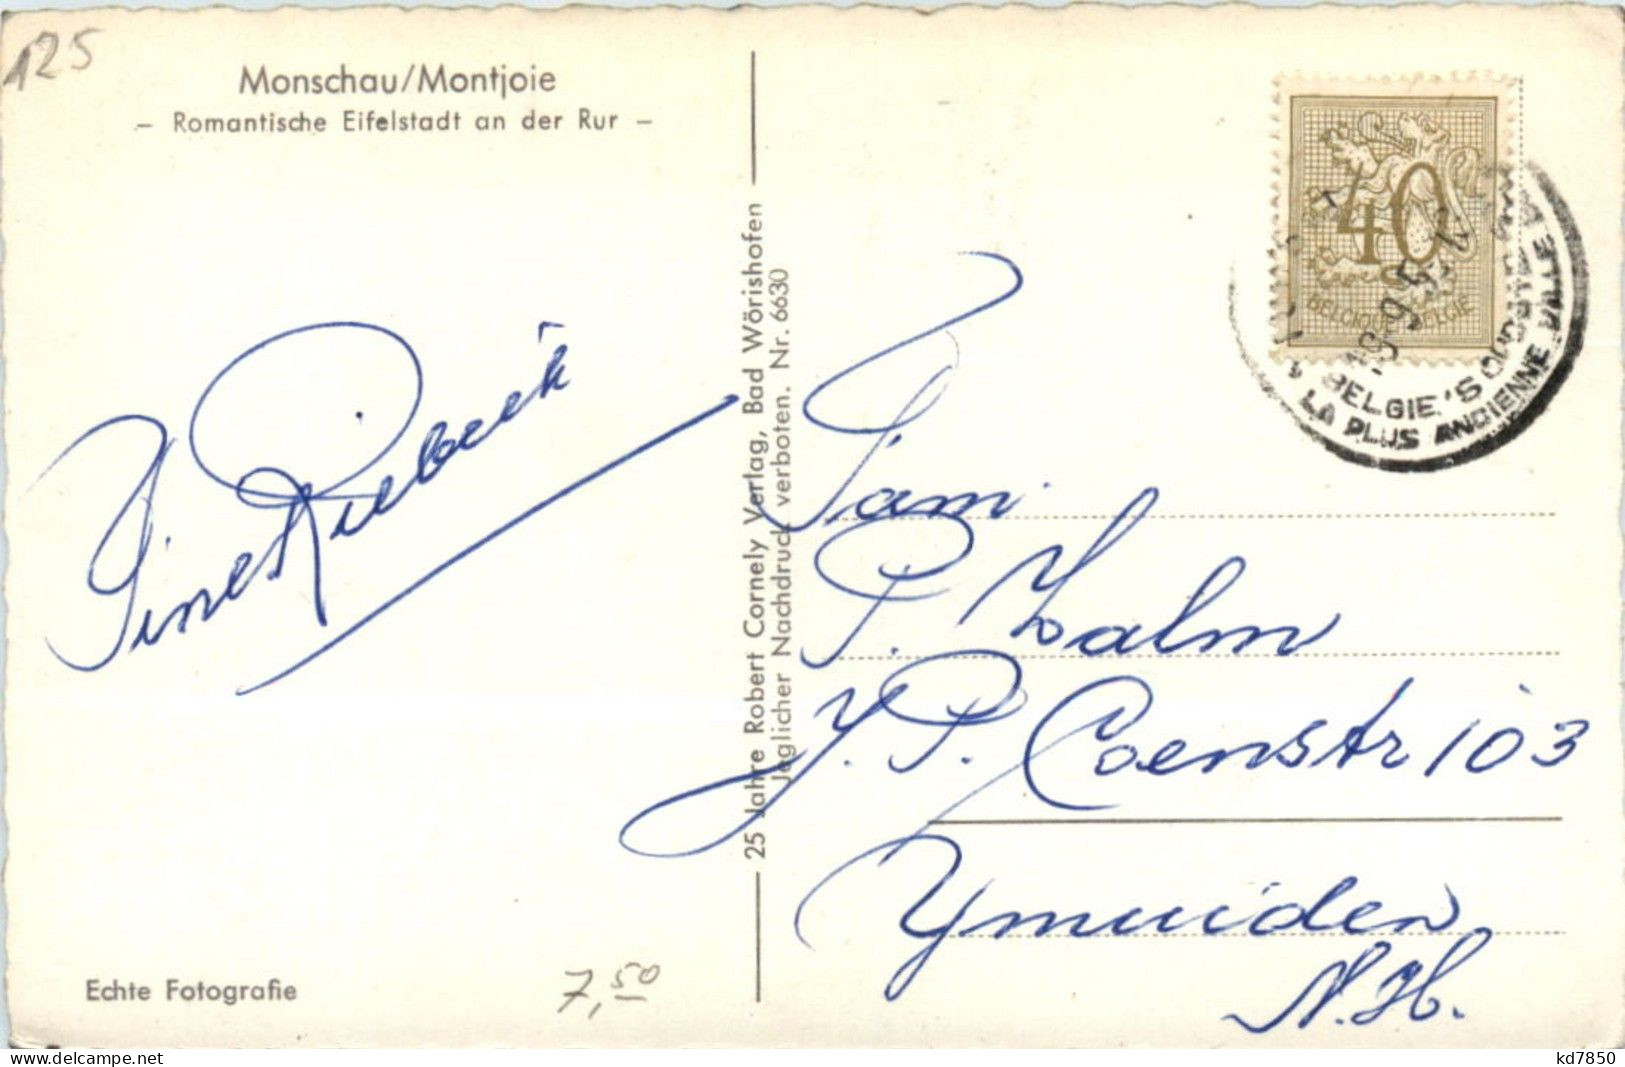 125
Monschau/Montjoie
– Romantische Eifelstadt an der Rur –
25 Jahre Robert Cornely Verlag, Bad Wörishofen
Jeglicher Nachdruck verboten. Nr. 6630
40
BELGIQUE BELGIE
BELGIE'S OUDSTE
LA PLUS ANCIENNE VILLE
Fam.
P. Zalm
J. P. Coenstr 103
Ymuiden
N.H.
Echte Fotografie
7,50
www.delcampe.net
kd7850